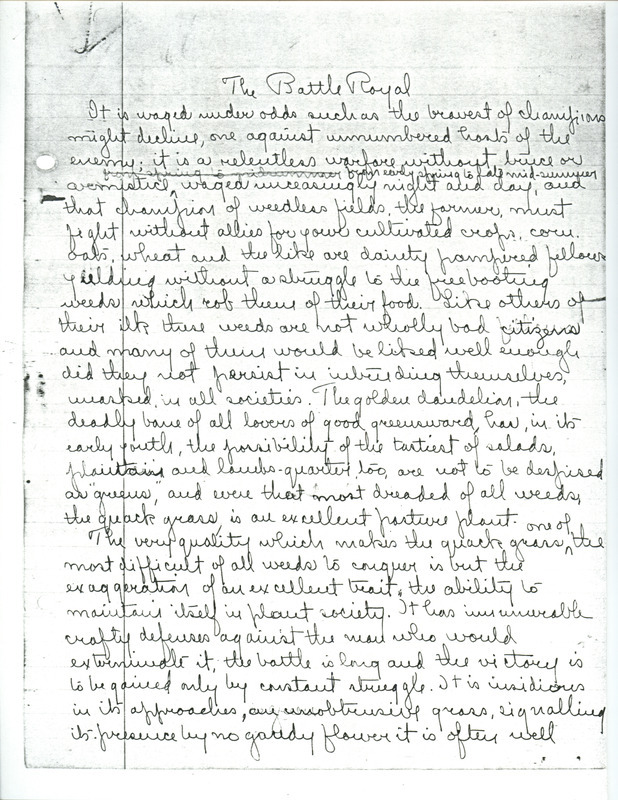 The Battle Royal
It is waged under odds such as the bravest of champions
might decline, one against unnumbered hosts of the
enemy; it is a relentless warfare without truce or
from spring to midsummer from early spring to late mid-summer
armistice, waged unceasingly night and day, and
that champion of weedless fields, the farmer, must
fight without allies for your cultivated crops, corn.
oats, wheat and the like are dainty pampered fellows
yielding without a struggle to the freebooting
weeds which rob them of their food. Like others of
their ilk these weeds are not wholly bad citizens
and many of them would be liked well enough
did they not persist in intruding themselves,
unasked, in all societies. The golden dandelion, the
deadly bane of all lovers of good greensward, has, in its
early youth, the possibility of the tartiest of salads,
plantain and lambs-quarter, too, are not to be despised
as "greens", and even that most dreaded of all weeds,
the quack grass, is an excellent pasture plant.
The very quality which makes the quack grass, one of the
most difficult of all weeds to conquer is but the
exaggeration of an excellent trait, the ability to
maintain itself in plant society. It has innumerable
crafty defenses against the man who would
exterminate it, the battle is long and the victory is
to be gained only by constant struggle. It is insidious
in its approaches, an unobtrusive grass, signalling
its presence by no gaudy flower it is often well